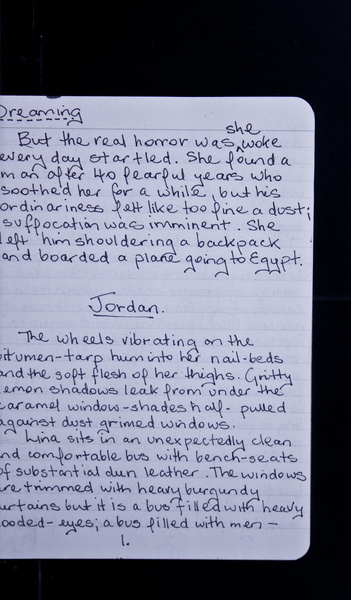 Dreaming
she
But the real horror was ^ woke
every day startled. She found a
man after 40 fearful years who
soothed her for a while, but his
ordinariness felt like too fine a dust;
suffocation was imminent. She
left him shouldering a backpack
and boarded a plane going to Egypt.
Jordan.
The wheels vibrating on the
bitumen-tarp hum into her nail-beds
and the soft flesh of her thighs. Gritty
lemon shadows leak from under the
caramel window-shades half-pulled
against dust grimed windows.
Lina sits in an unexpectedly clean
and comfortable bus with bench-seats
of substantial dun leather. The windows
are trimmed with heavy burgundy
curtains but it is a bus filled with heavy
hooded-eyes; a bus filled with men –
1.